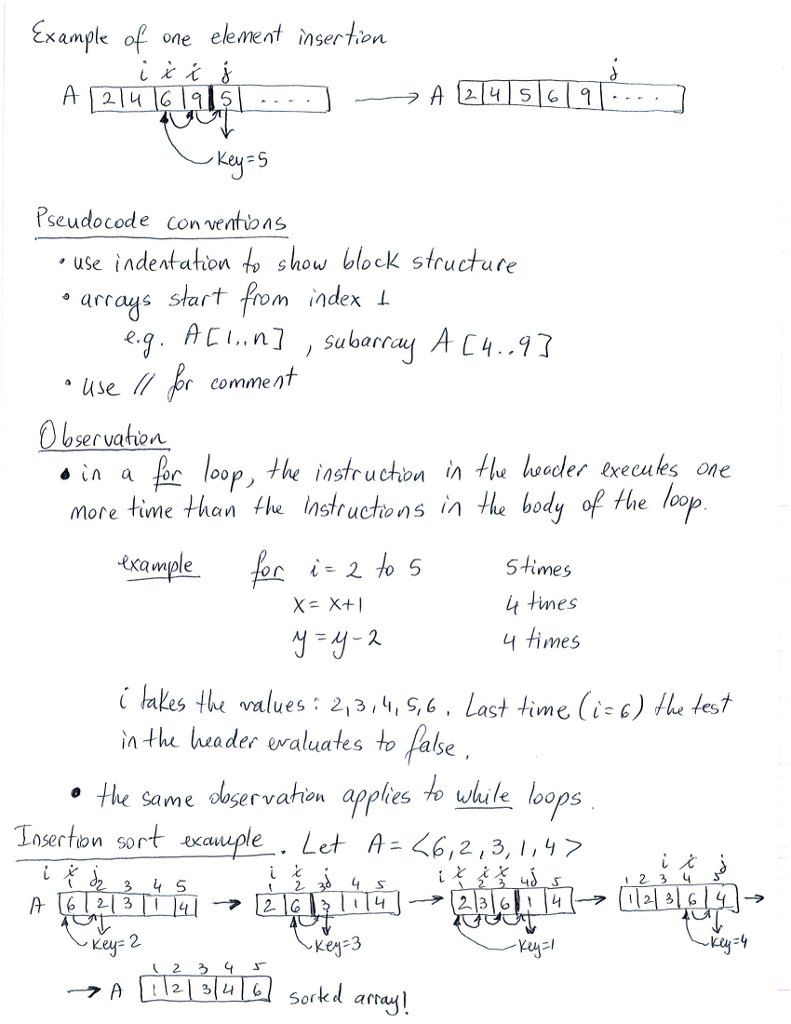 Example of one element insertion
i i i j
A 2 4 6 9 5 .... → A 2 4 5 6 9 ....
j
Key=5
Pseudocode conventions
• use indentation to show block structure
• arrays start from index 1
e.g. A[1..n] , subarray A[4..9]
• use // for comment
Observation
• in a for loop, the instruction in the header executes one
more time than the instructions in the body of the loop.
example for i = 2 to 5 5 times
x = x+1 4 times
y = y-2 4 times
i takes the values: 2,3,4,5,6. Last time (i=6) the test
in the header evaluates to false.
• the same observation applies to while loops.
Insertion sort example. Let A = <6,2,3,1,4>
i i j i i j i i i i j i i j
1 2 3 4 5 1 2 3 4 5 1 2 3 4 5 1 2 3 4 5
A 6 2 3 1 4 → 2 6 3 1 4 → 2 3 6 1 4 → 1 2 3 6 4 →
Key=2 Key=3 Key=1 Key=4
1 2 3 4 5
→ A 1 2 3 4 6 sorted array!